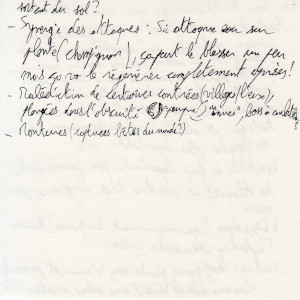 sortent du sol ?
- Synergie des attaques : Si attaque eau sur
plante (champignon), ça peut le blesser un peu
mais ça va le régénérer complètement après !
- Malédiction de certaines contrées (villages/lieux),
plongées dans l'obscurité
boss à combattre
- Montures (capturer bêtes du monde ?)